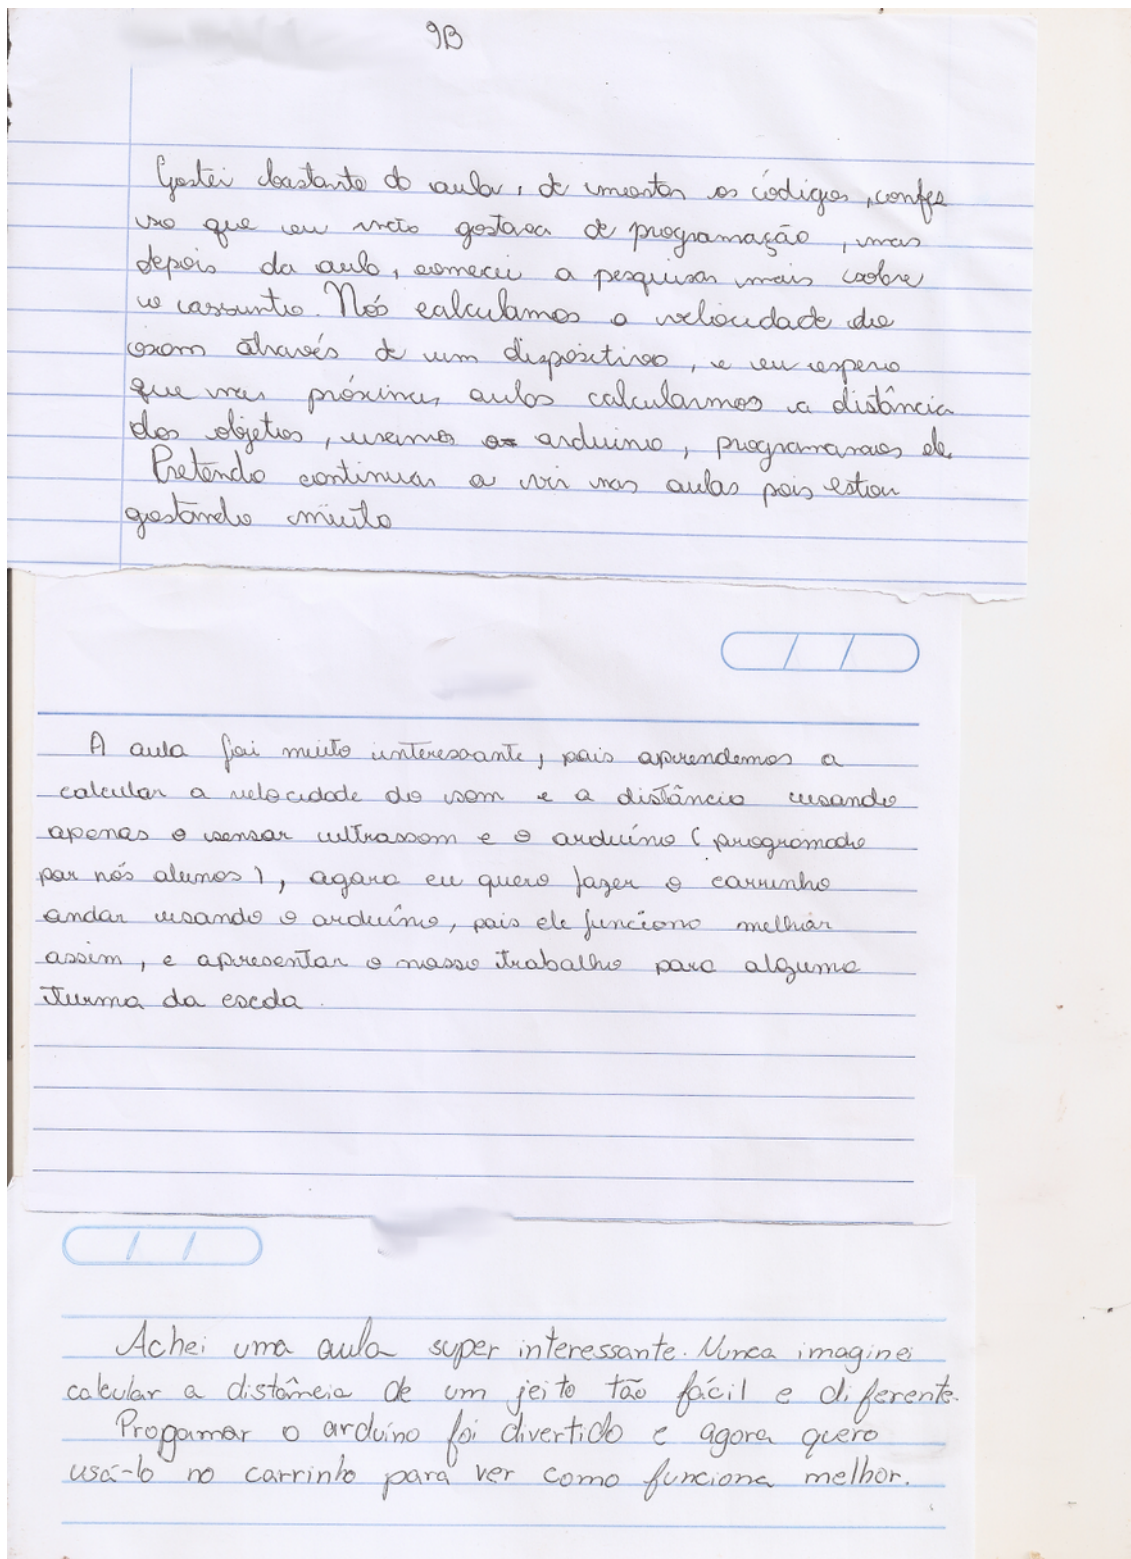 9B
Gostei bastante da aula, de montar os códigos, confes
so que eu não gostava de programação, mas
depois da aula, comecei a pesquisar mais sobre
o assunto. Nós calculamos a velocidade do
som através de um dispositivo, e eu espero
que nas próximas aulas calcularmos a distância
dos objetos, usamos o arduino, programamos ele.
Pretendo continuar a vir nas aulas pois estou
gostando muito
A aula foi muito interessante, pois aprendemos a
calcular a velocidade do som e a distância usando
apenas o sensor ultrassom e o arduíno (programado
por nós alunos), agora eu quero fazer o carrinho
andar usando o arduíno, pois ele funciona melhor
assim, e apresentar o nosso trabalho para alguma
turma da escola.
Achei uma aula super interessante. Nunca imaginei
calcular a distância de um jeito tão fácil e diferente.
Progamar o arduino foi divertido e agora quero
usá-lo no carrinho para ver como funciona melhor.